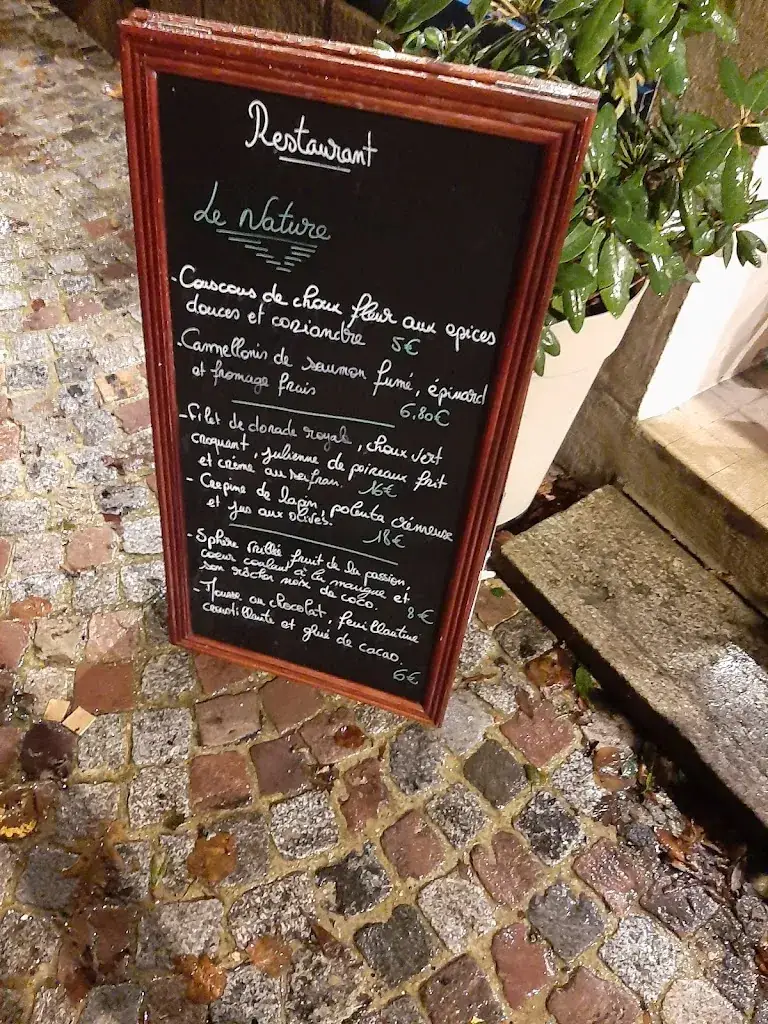 Restaurant
Le Nature
- Couscous de choux fleur aux épices
douces et coriandre 5€
- Cannellonis de saumon fumé, épinard
et fromage frais
6.80€
- Filet de dorade royale, choux vert
croquant, julienne de poireaux frit
et crème au safran. 16€
- Crepine de lapin, polenta crémeuse
et jus aux olives. 18€
- Sphère fruit de la passion,
coeur coulant à la mangue et
son rocher noix de coco. 8€
- Mousse au chocolat, feuillantine
croustillante et glué de cacao.
6€